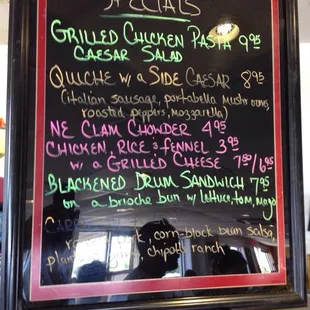 SPECIALS
GRILLED CHICKEN PASTA 9.95
CAESAR SALAD
QUICHE w/ a SIDE CAESAR 8.95
(italian sausage, portabella mushrooms,
roasted peppers, mozzarella)
NE CLAM CHOWDER 4.95
CHICKEN, RICE & FENNEL 3.95
w/ a GRILLED CHEESE 7.50/6.95
BLACKENED DRUM SANDWICH 7.95
on a brioche bun w/ lettuce, tom, mayo
corn-black bean salsa,
chipotle ranch